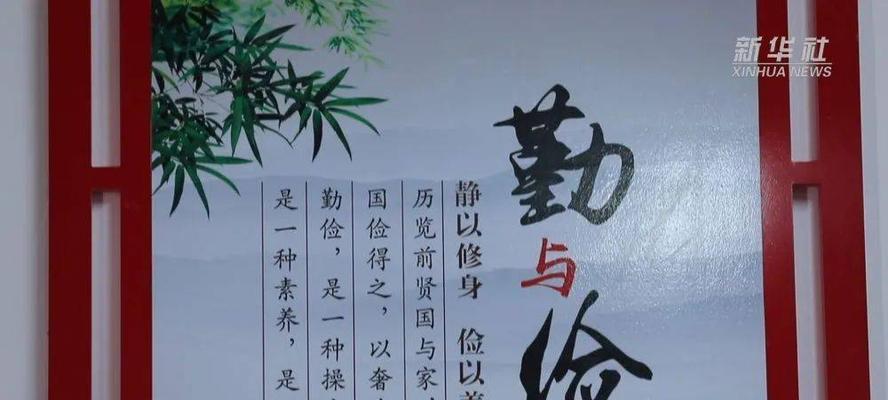 新华社
XINHUA NEWS
勤与俭
静以修身 俭以
历览前贤国与家
国俭得之，以奢
勤俭，是一种操
是一种素养，是